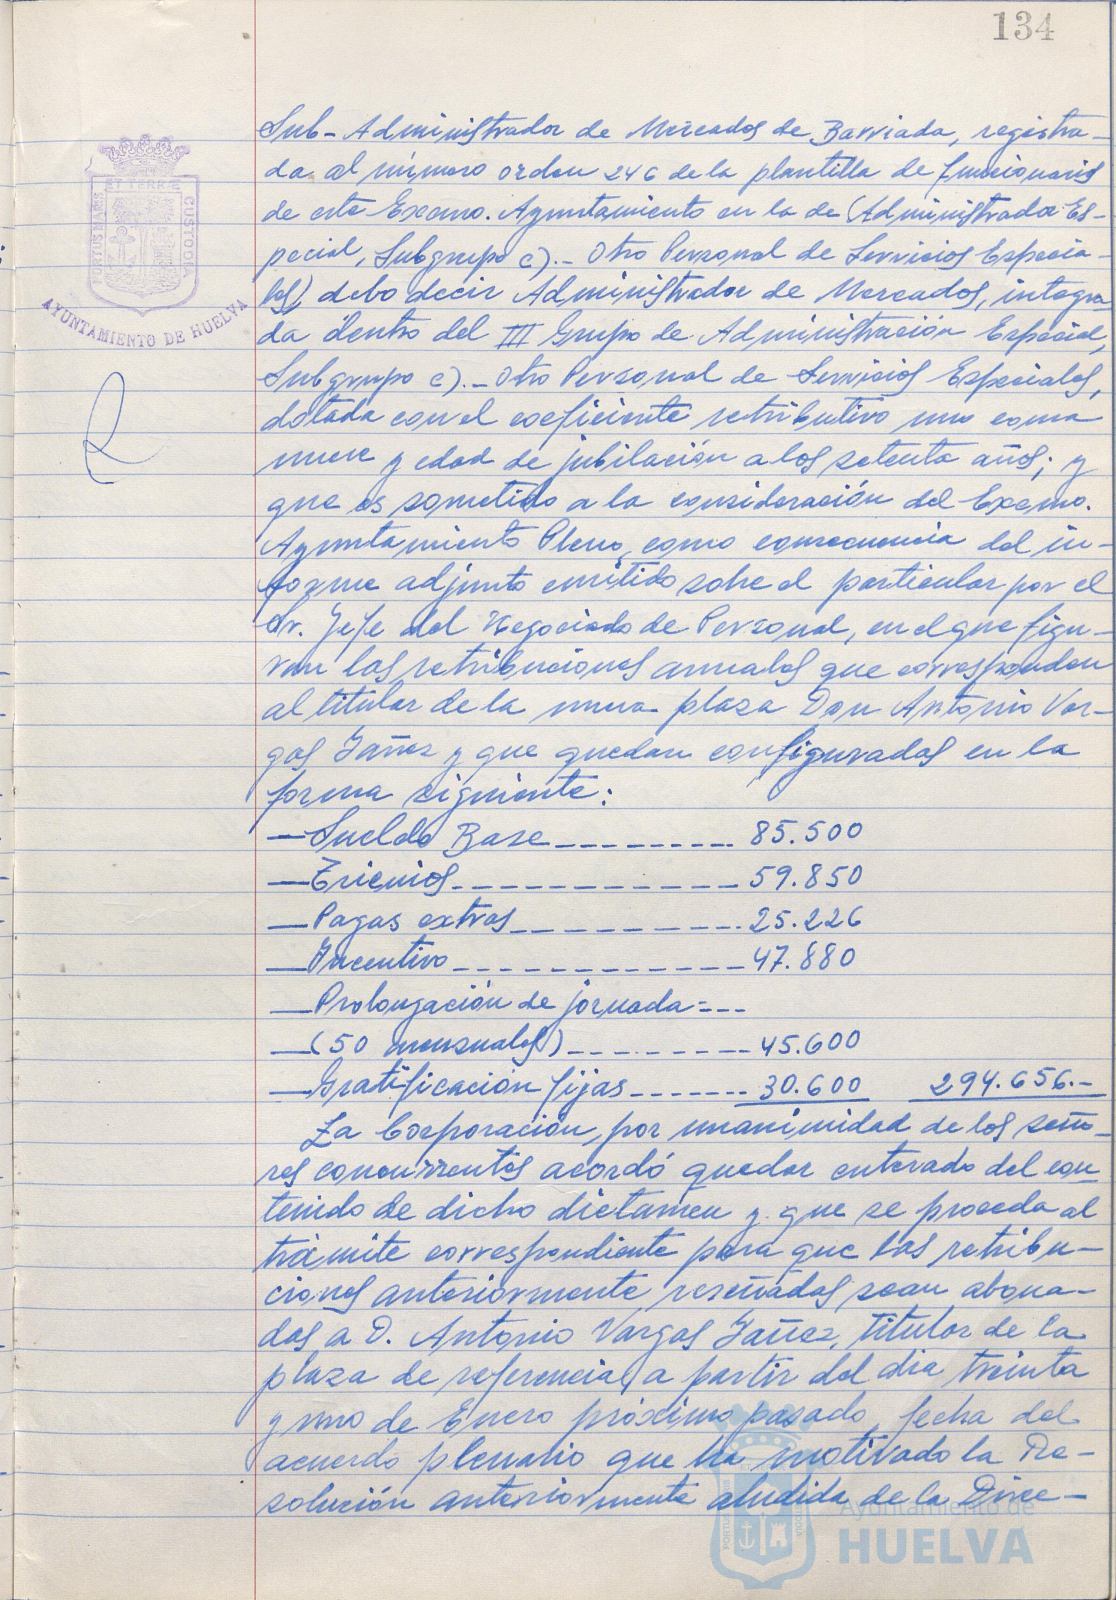 134
PORTUS MARIS
ET TERRÆ
CUSTODIA
AYUNTAMIENTO DE HUELVA
Sub-Administrador de Mercados de Barriada, registra-
da al número orden 246 de la plantilla de funcionarios
de este Excmo. Ayuntamiento en la de (Administrador Es-
pecial, Subgrupo c).- Otro Personal de Servicios Especia-
les) debe decir Administrador de Mercados, integra-
da dentro del III Grupo de Administración Especial,
Subgrupo c).- Otro Personal de Servicios Especiales,
dotada con el coeficiente retributivo uno coma
nueve y edad de jubilación a los setenta años; y
que es sometido a la consideración del Excmo.
Ayuntamiento Pleno, como consecuencia del in-
forme adjunto emitido sobre el particular por el
Sr. Jefe del Negociado de Personal, en el que figu-
ran las retribuciones anuales que corresponden
al titular de la nueva plaza Don Antonio Var-
gas Yañez y que quedan configuradas en la
forma siguiente:
—Sueldo Base--------- 85.500
—Trienios------------ 59.850
—Pagas extras---------- 25.226
—Incentivo------------ 47.880
—Prolongación de jornada=--
—(50 mensuales)-------- 45.600
—Gratificación fijas------- 30.600 294.656.-
La Corporación, por unanimidad de los seño-
res concurrentes acordó quedar enterado del con
tenido de dicho dictamen y que se proceda al
trámite correspondiente para que las retribu-
ciones anteriormente reseñadas sean abona-
das a D. Antonio Vargas Yañez, titular de la
plaza de referencia, a partir del dia treinta
y uno de Enero próximo pasado, fecha del
acuerdo plenario que ha motivado la Re-
solución anteriormente aludida de la Direc-
Ayuntamiento de
HUELVA